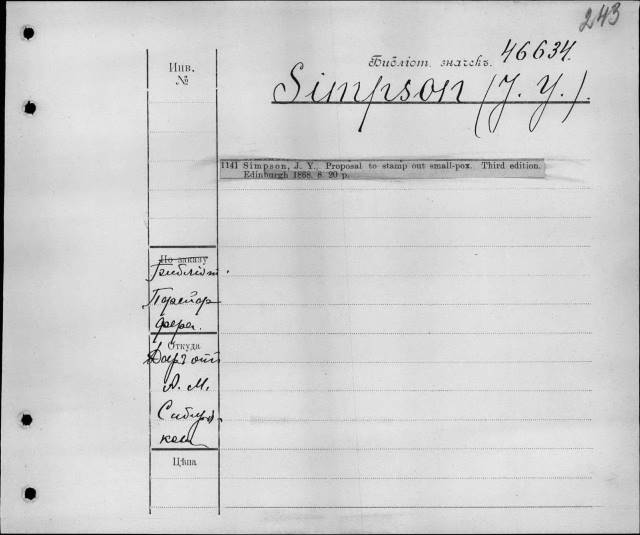 243
Библіот. значекъ. 46634.
Simpson (J. Y.).
Инв.
№
1141 Simpson, J. Y., Proposal to stamp out small-pox. Third edition.
Edinburgh 1868. 8. 20 p.
По заказу
Библіот.
Откуда
Даръ отъ
А. М.
Сибиря-
кова
Цѣна